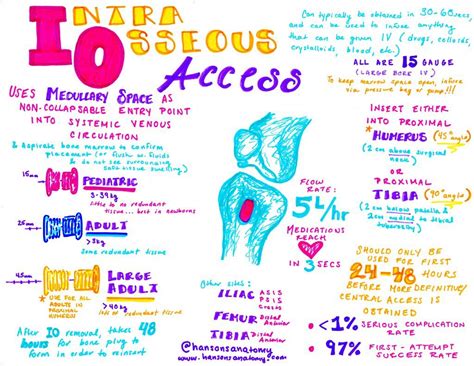 INTRA
OSSEOUS
ACCESS
USES MEDULLARY SPACE AS
NON-COLLAPSABLE ENTRY POINT
INTO SYSTEMIC VENOUS
CIRCULATION
& Aspirate bone marrow to confirm
placement (or flush w/ fluids
& do not see surrounding
soft tissue swelling)
15mm
PEDIATRIC
3-39kg
little to no redundant
tissue... best in newborns
25mm
ADULT
>3kg
some redundant tissue
45mm
LARGE
ADULT
>40kg
lots of redundant tissue
* USE FOR ALL
ADULTS IN
PROXIMAL
HUMERUS!
AFTER IO REMOVAL, TAKES 48
HOURS FOR BONE PLUG TO
FORM IN ORDER TO REINSERT
Can typically be obtained in 30-60 secs,
and can be used to infuse anything
that can be given IV (drugs, colloids,
crystalloids, blood, etc.)
ALL ARE 15 GAUGE
(LARGE BORE IV)
To keep marrow space open, infuse
via pressure bag or pump!!!
INSERT EITHER
INTO PROXIMAL
HUMERUS (45° angle)
(2 cm above surgical
neck)
OR PROXIMAL
TIBIA (90° angle)
(2 cm below patella &
2 cm medial to tibial
tuberosity)
FLOW
RATE:
5L/hr
MEDICATIONS
REACH
♥
IN 3 SECS
Other sites:
ILIAC ASIS
PSIS
Crest
FEMUR Distal
Anterior
TIBIA Distal
Anterior
@hansonsanatomy
www.hansonsanatomy.com
SHOULD ONLY BE
USED FOR FIRST
24-48 HOURS
BEFORE MORE DEFINITIVE/
CENTRAL ACCESS IS
OBTAINED
• <1% SERIOUS COMPLICATION
RATE
• 97% FIRST-ATTEMPT
SUCCESS RATE